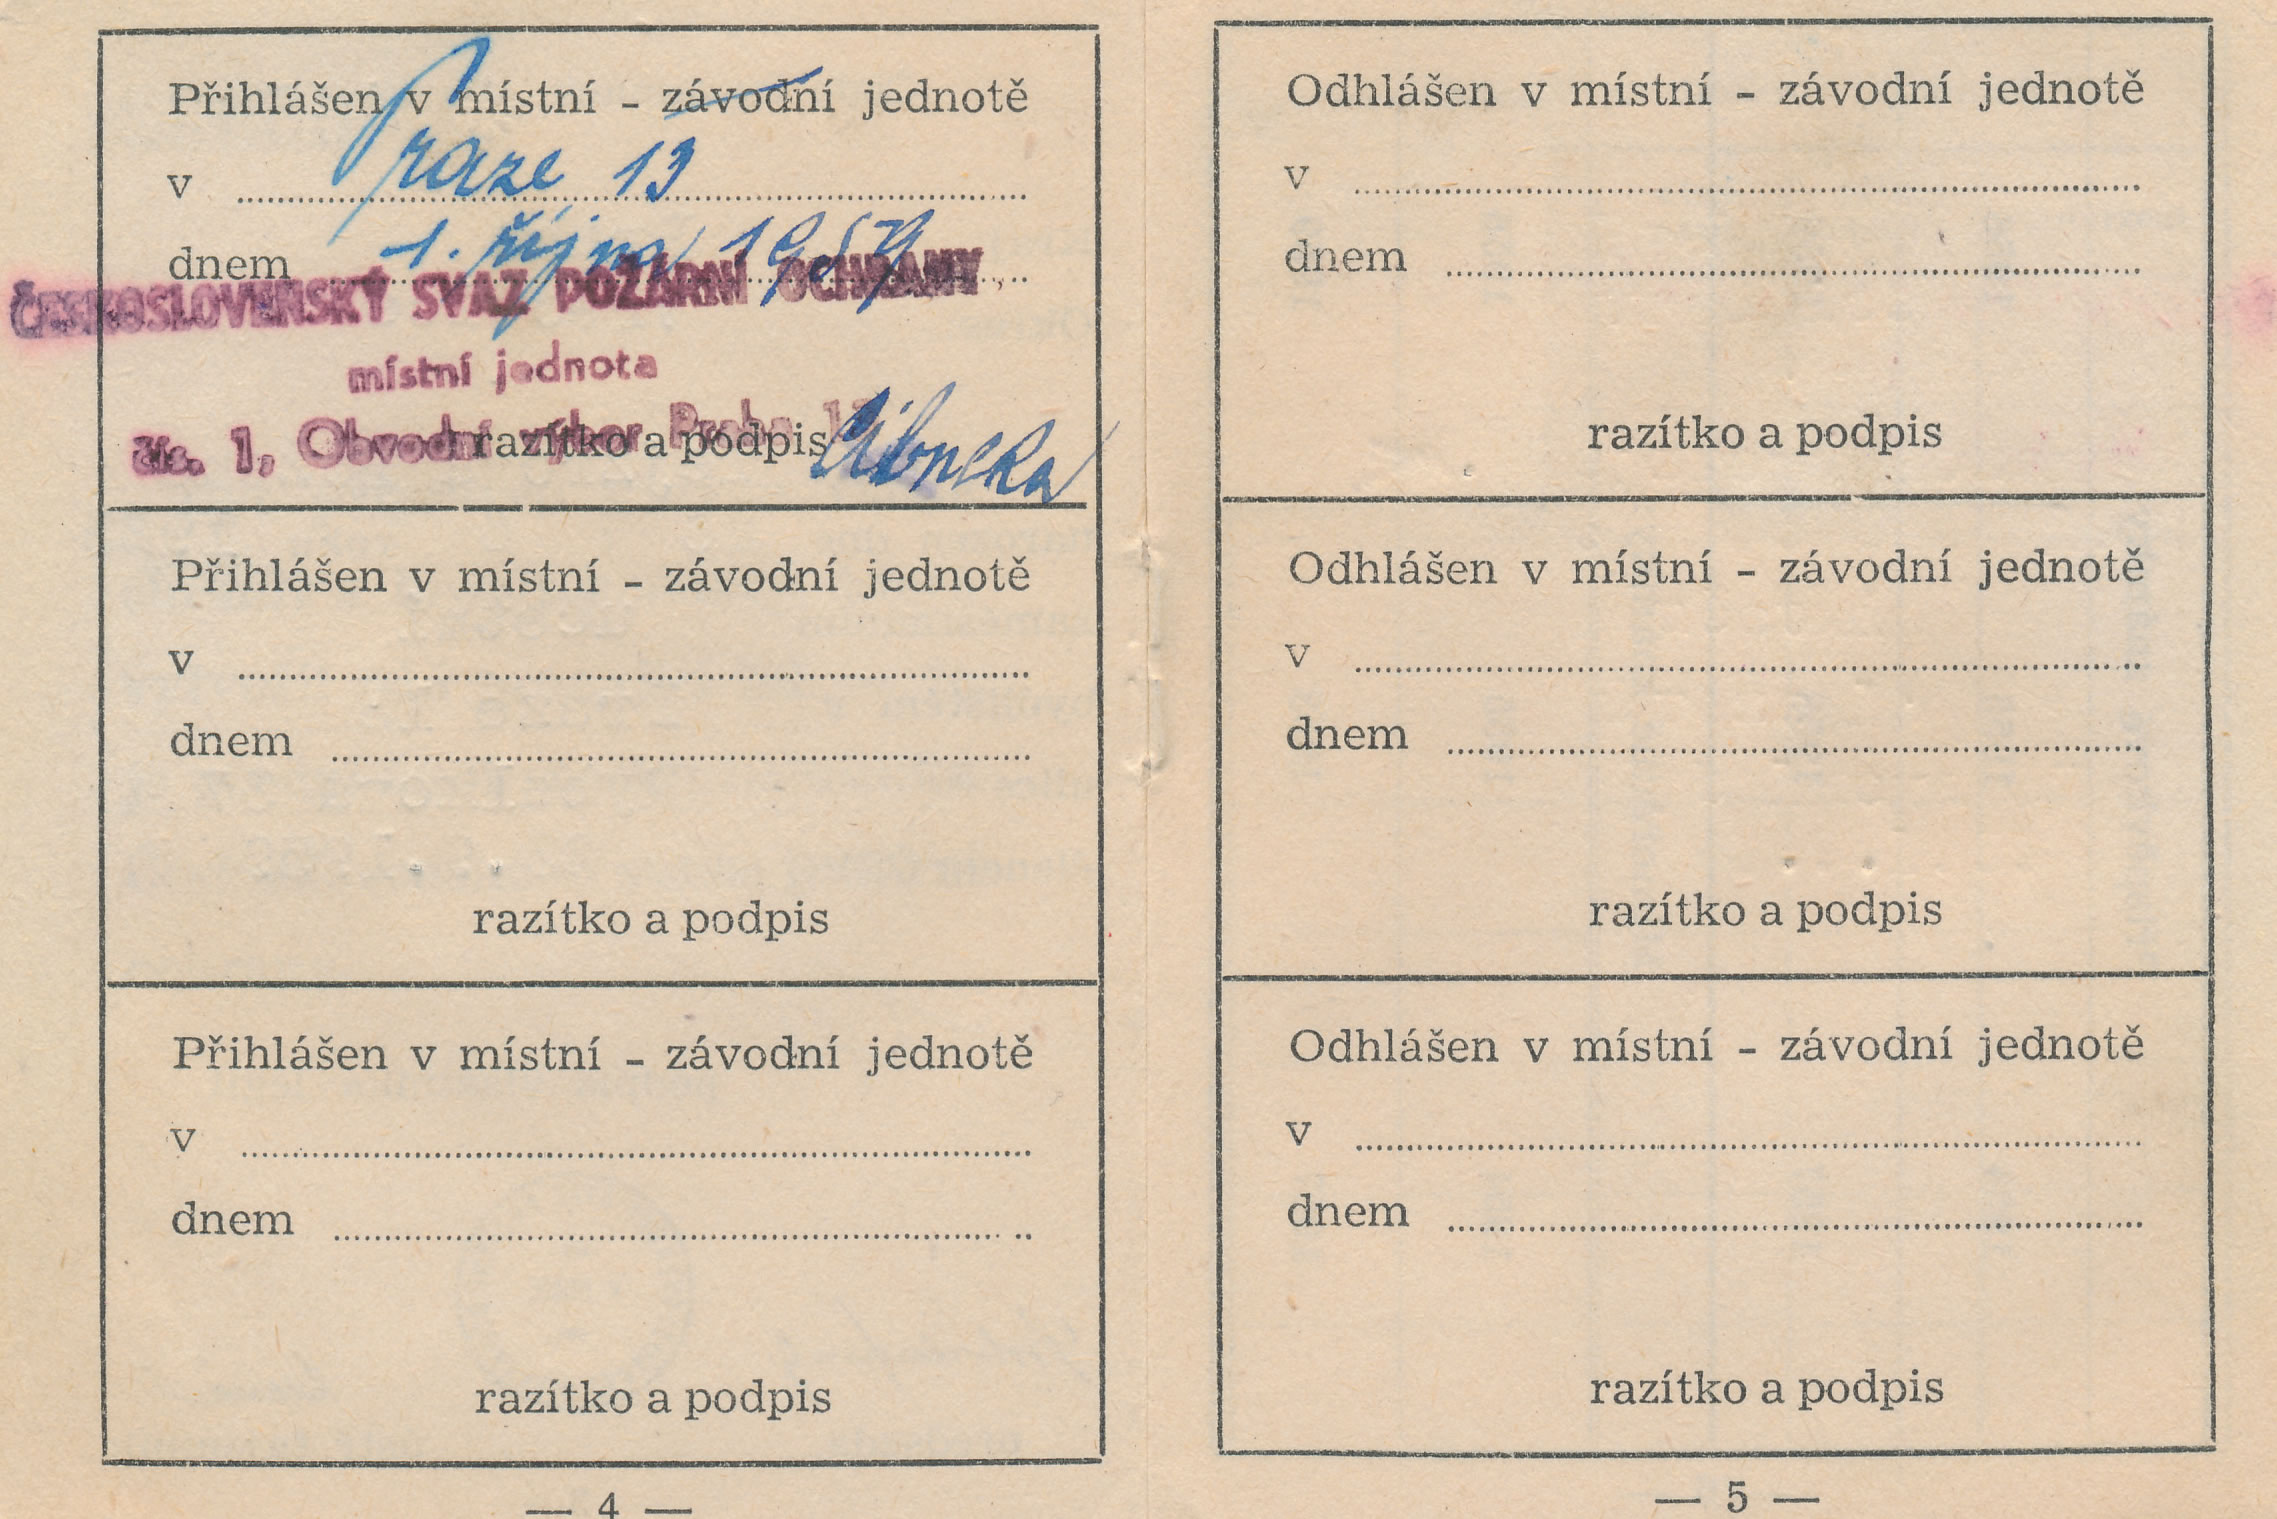 Přihlášen v místní - závodní jednotě
v Praze 13
dnem 1. října 1957
ČESKOSLOVENSKÝ SVAZ POŽÁRNÍ OCHRANY
místní jednota
čís. 1, Obvodní výbor Praha 13
razítko a podpis
Přihlášen v místní - závodní jednotě
v
dnem
razítko a podpis
Přihlášen v místní - závodní jednotě
v
dnem
razítko a podpis
— 4 —
Odhlášen v místní - závodní jednotě
v
dnem
razítko a podpis
Odhlášen v místní - závodní jednotě
v
dnem
razítko a podpis
Odhlášen v místní - závodní jednotě
v
dnem
razítko a podpis
— 5 —